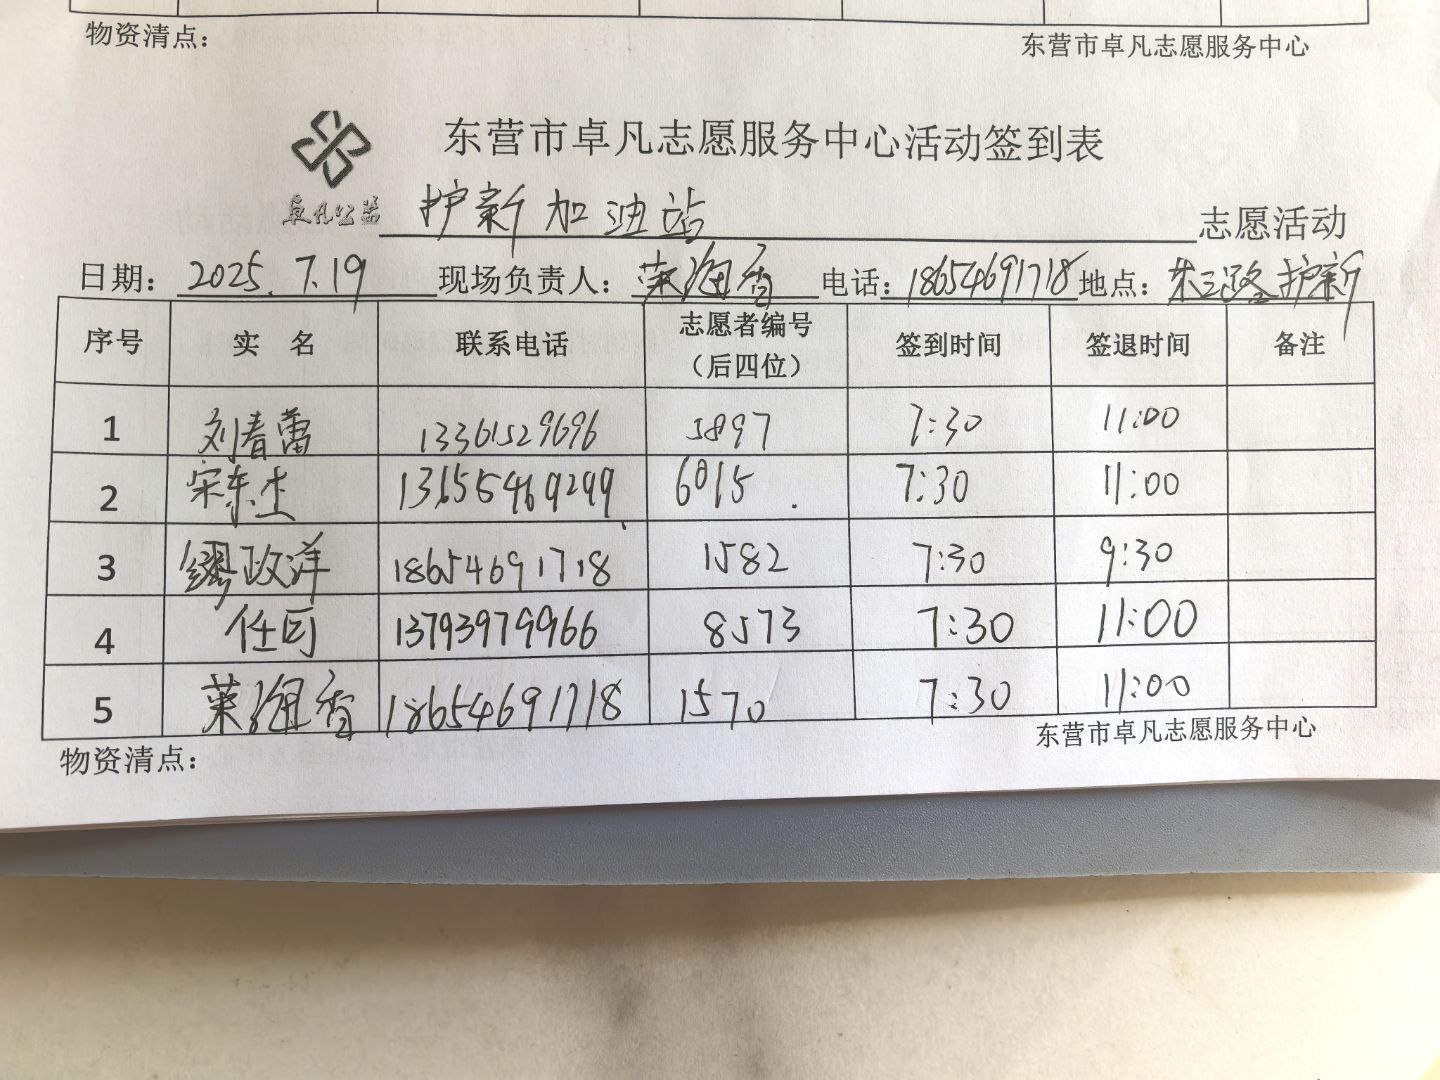 物资清点： 东营市卓凡志愿服务中心
东营市卓凡志愿服务中心活动签到表
卓凡公益 护新加油站 志愿活动
日期：2025.7.19 现场负责人： 香 电话：18654691718 地点： 三路护新
序号 实 名 联系电话 志愿者编号（后四位） 签到时间 签退时间 备注
1 刘春蕾 13361529696 5897 7:30 11:00
2 宋东杰 6015 7:30 11:00
3 缪政洋 18654691718 1582 7:30 9:30
4 任 13793979966 8573 7:30 11:00
5 香 18654691718 1570 7:30 11:00
物资清点： 东营市卓凡志愿服务中心